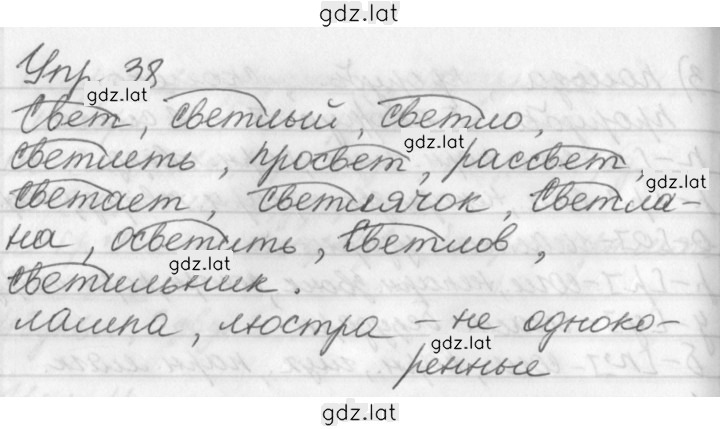 gdz.lat
Упр. 38
gdz.lat
Свет, светлый, светло,
светлеть, просвет, рассвет,
gdz.lat
светает, светлячок, Светла-
на, осветить, Светлов,
gdz.lat
светильник.
лампа, люстра - не одноко-
gdz.lat
ренные
gdz.lat